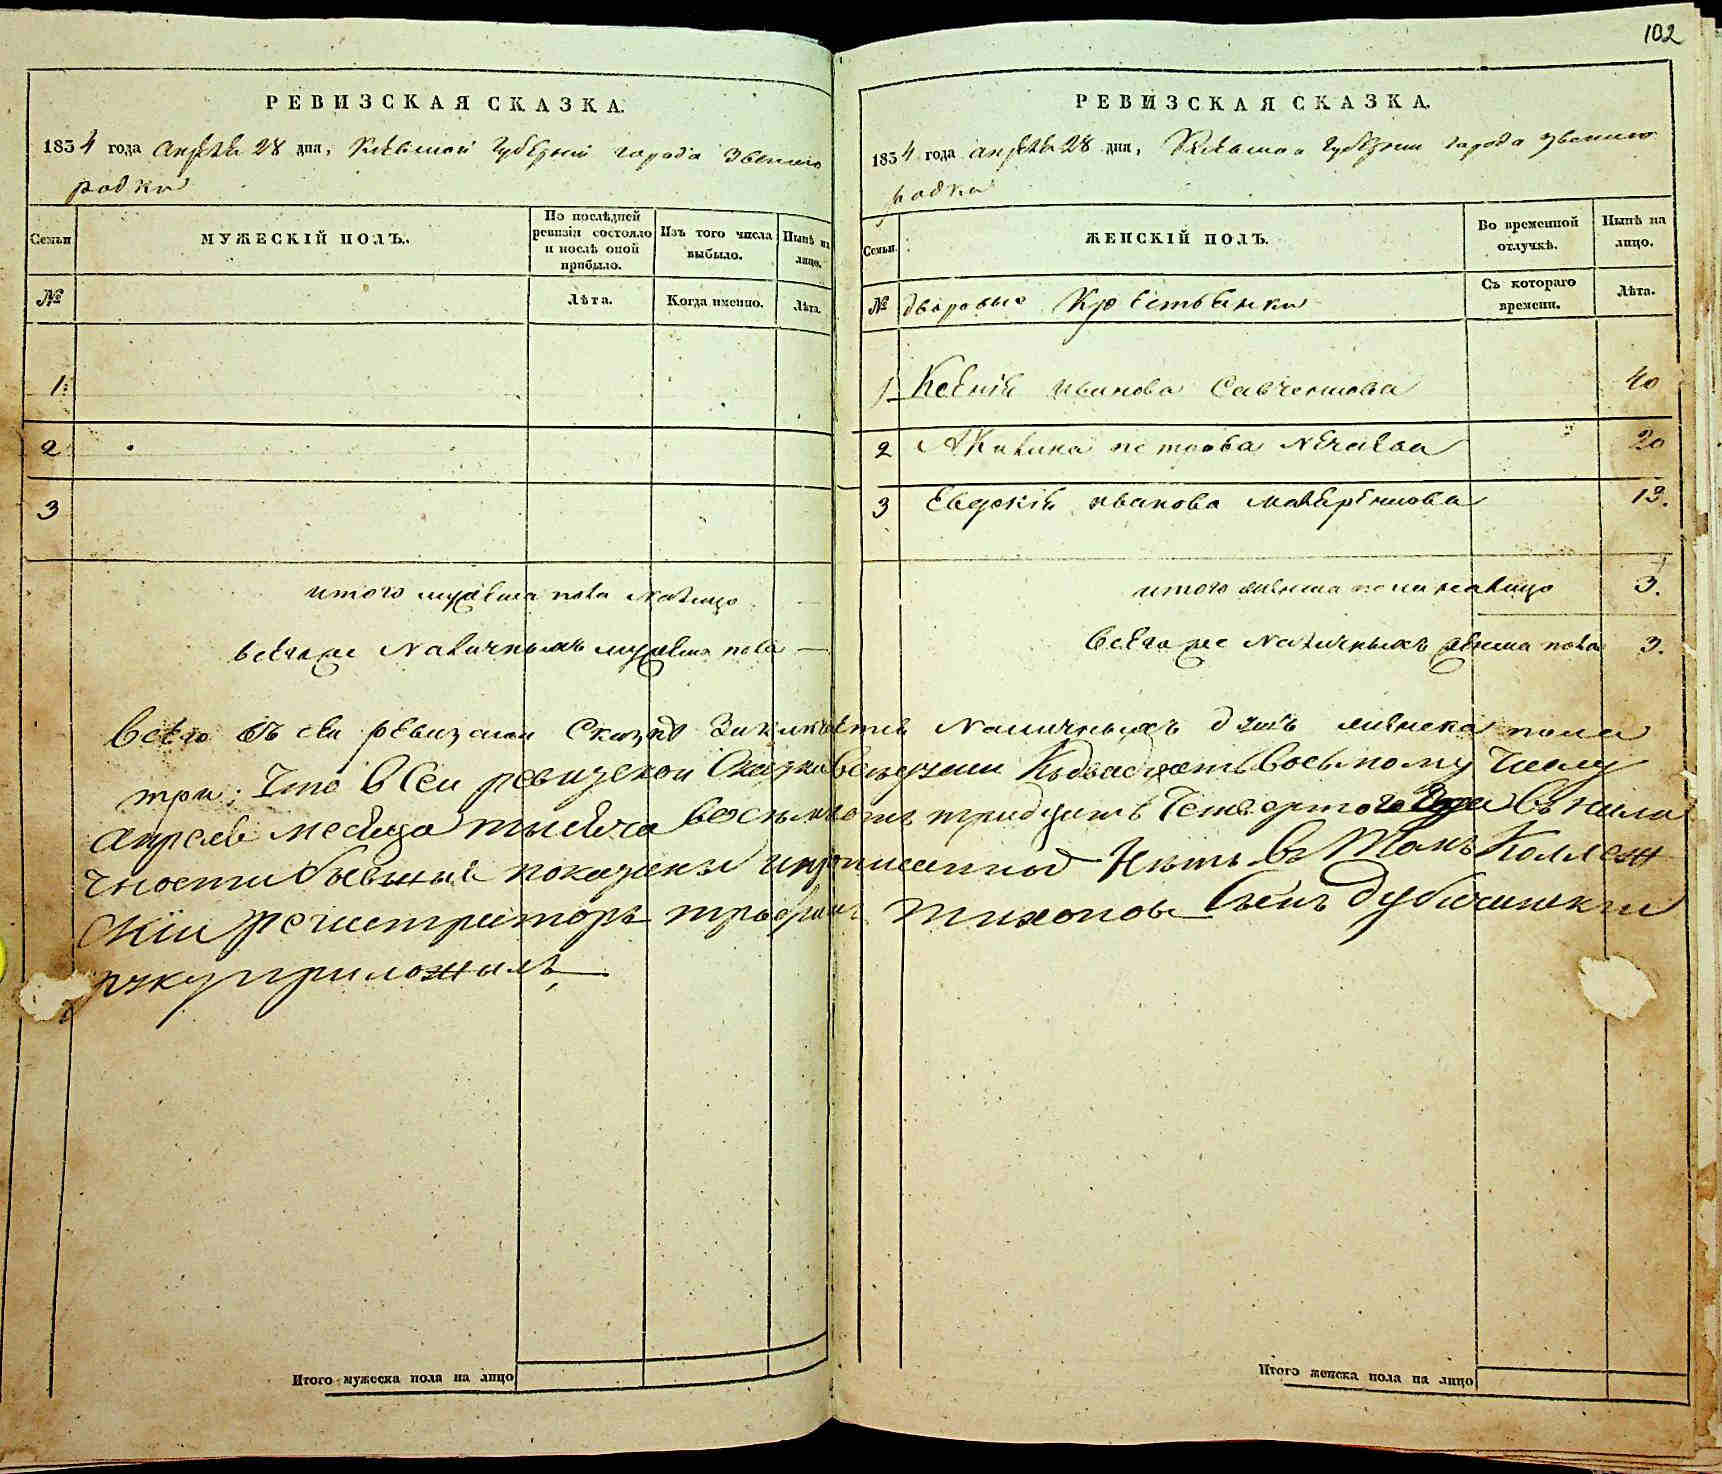 102
РЕВИЗСКАЯ СКАЗКА.
1834 года апреля 28 дня, Киевской Губернии города Звениго
родки
Семьи
МУЖЕСКІЙ ПОЛЪ.
По послѣдней
ревизіи состояло
и послѣ оной
прибыло.
Изъ того числа
выбыло.
Нынѣ на
лицо.
№
Лѣта.
Когда именно.
Лѣта.
1.
2
3
итого мужеска пола налицо —
всего же наличныхъ мужеска пола —
РЕВИЗСКАЯ СКАЗКА.
1834 года апреля 28 дня, Киевской Губернии города Звениго
родки
Семьи
ЖЕНСКІЙ ПОЛЪ.
Во временной
отлучкѣ.
Нынѣ на
лицо.
№ дворовые Крестьянки
Съ котораго
времени.
Лѣта.
1 Ксенія Иванова Савченкова 40
2 Акилина петрова 20
3 Евдокія иванова 13.
итого женска пола налицо 3.
всего же наличныхъ женска пола 3.
Всего въ сей ревизской Сказке Заключается Наличныхъ душъ женска пола
три. Что в Сеи ревизской Сказки Кьдвадцать Восьмому Числу
апреля месяца тысяча восемьсотъ тридцать Четвертого Года в нали
чности показаны Нетъ в Томъ Коллеж
скіи регистраторъ Тихонов Сынъ
руку приложилъ
Итого мужеска пола на лицо
Итого женска пола на лицо